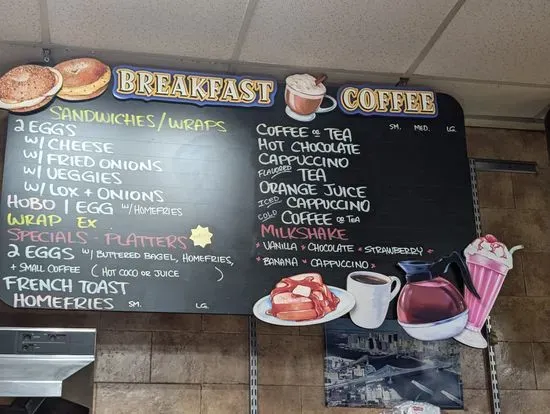 BREAKFAST
SANDWICHES/WRAPS
2 EGGS
W/ CHEESE
W/ FRIED ONIONS
W/ VEGGIES
W/ LOX + ONIONS
HOBO 1 EGG W/HOMEFRIES
WRAP EX.
SPECIALS - PLATTERS
2 EGGS W/ BUTTERED BAGEL, HOMEFRIES,
+ SMALL COFFEE (HOT COCO OR JUICE)
FRENCH TOAST
HOMEFRIES SM. LG.
COFFEE
COFFEE OR TEA SM. MED. LG.
HOT CHOCOLATE
CAPPUCCINO
FLAVORED TEA
ORANGE JUICE
ICED CAPPUCCINO
COLD COFFEE OR TEA
MILKSHAKE
• VANILLA • CHOCOLATE • STRAWBERRY •
• BANANA • CAPPUCCINO •